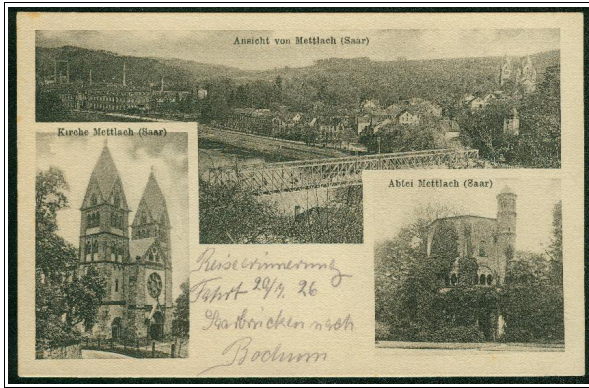 Ansicht von Mettlach (Saar)
Kirche Mettlach (Saar)
Abtei Mettlach (Saar)
Reiseerinnerung
Fahrt 20/7. 26
Saarbrücken nach
Bochum